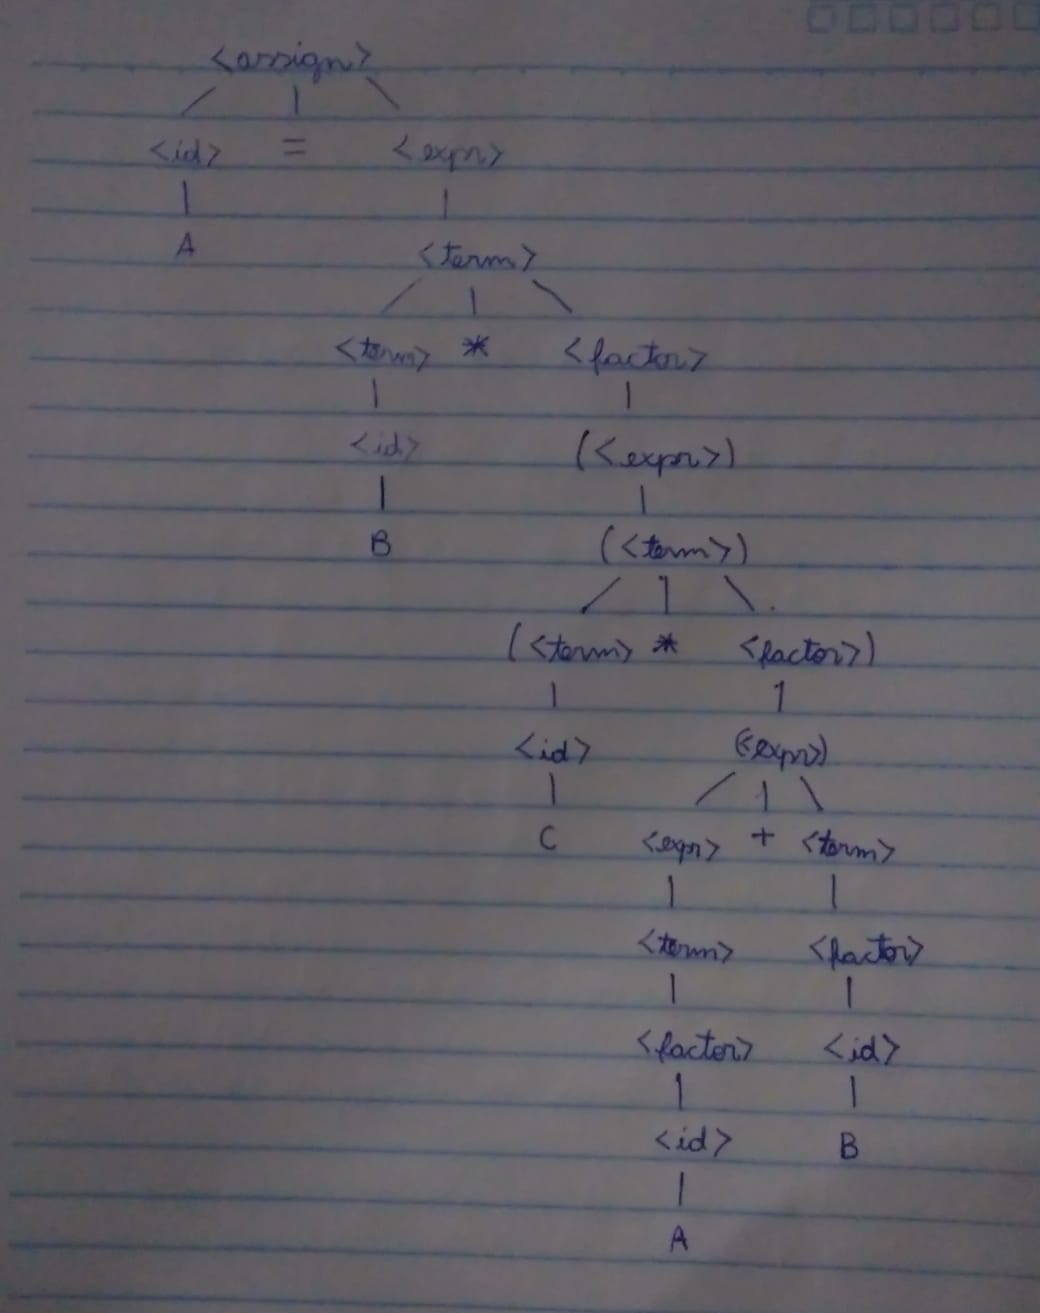 <assign>
<id> = <expr>
A <term>
<term> * <factor>
<id> (<expr>)
B (<term>)
(<term> * <factor>)
<id> (<expr>)
C <expr> + <term>
<term> <factor>
<factor> <id>
<id> B
A